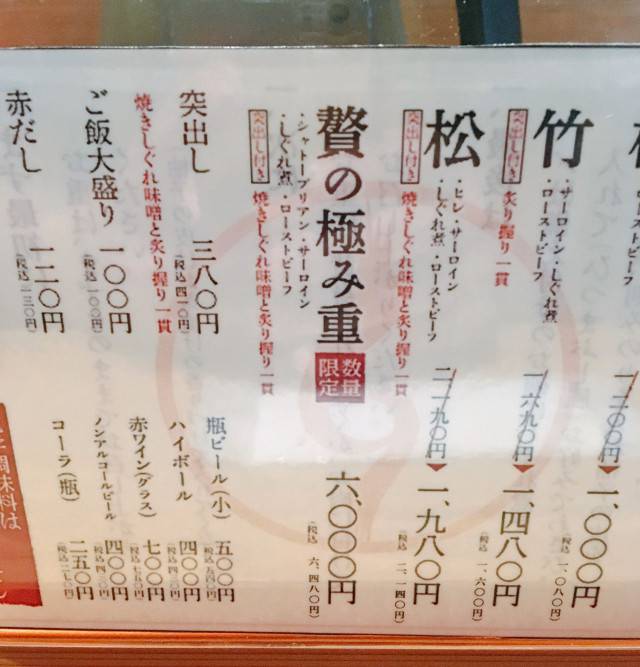 ローストビーフ
一、二〇〇円
一、〇〇〇円
(税込 一、〇八〇円)
竹
・サーロイン・しぐれ煮
・ローストビーフ
突出し付き 炙り握り一貫
一、六九〇円
一、四八〇円
(税込 一、六〇〇円)
松
・ヒレ・サーロイン
・しぐれ煮・ローストビーフ
突出し付き 焼きしぐれ味噌と炙り握り一貫
二、一九〇円
一、九八〇円
(税込 二、一四〇円)
贅の極み重
数量限定
・シャトーブリアン・サーロイン
・しぐれ煮・ローストビーフ
突出し付き 焼きしぐれ味噌と炙り握り一貫
六、〇〇〇円
(税込 六、四八〇円)
突出し 三八〇円
(税込 四一〇円)
焼きしぐれ味噌と炙り握り一貫
ご飯大盛り 一〇〇円
(税込 一〇〇円)
赤だし 一二〇円
(税込 一三〇円)
瓶ビール(小) 五〇〇円
(税込 五四〇円)
ハイボール 四〇〇円
(税込 四三〇円)
赤ワイン(グラス) 七〇〇円
(税込 七五〇円)
ノンアルコールビール 四〇〇円
(税込 四三〇円)
コーラ(瓶) 二五〇円
(税込 二七〇円)
調味料は